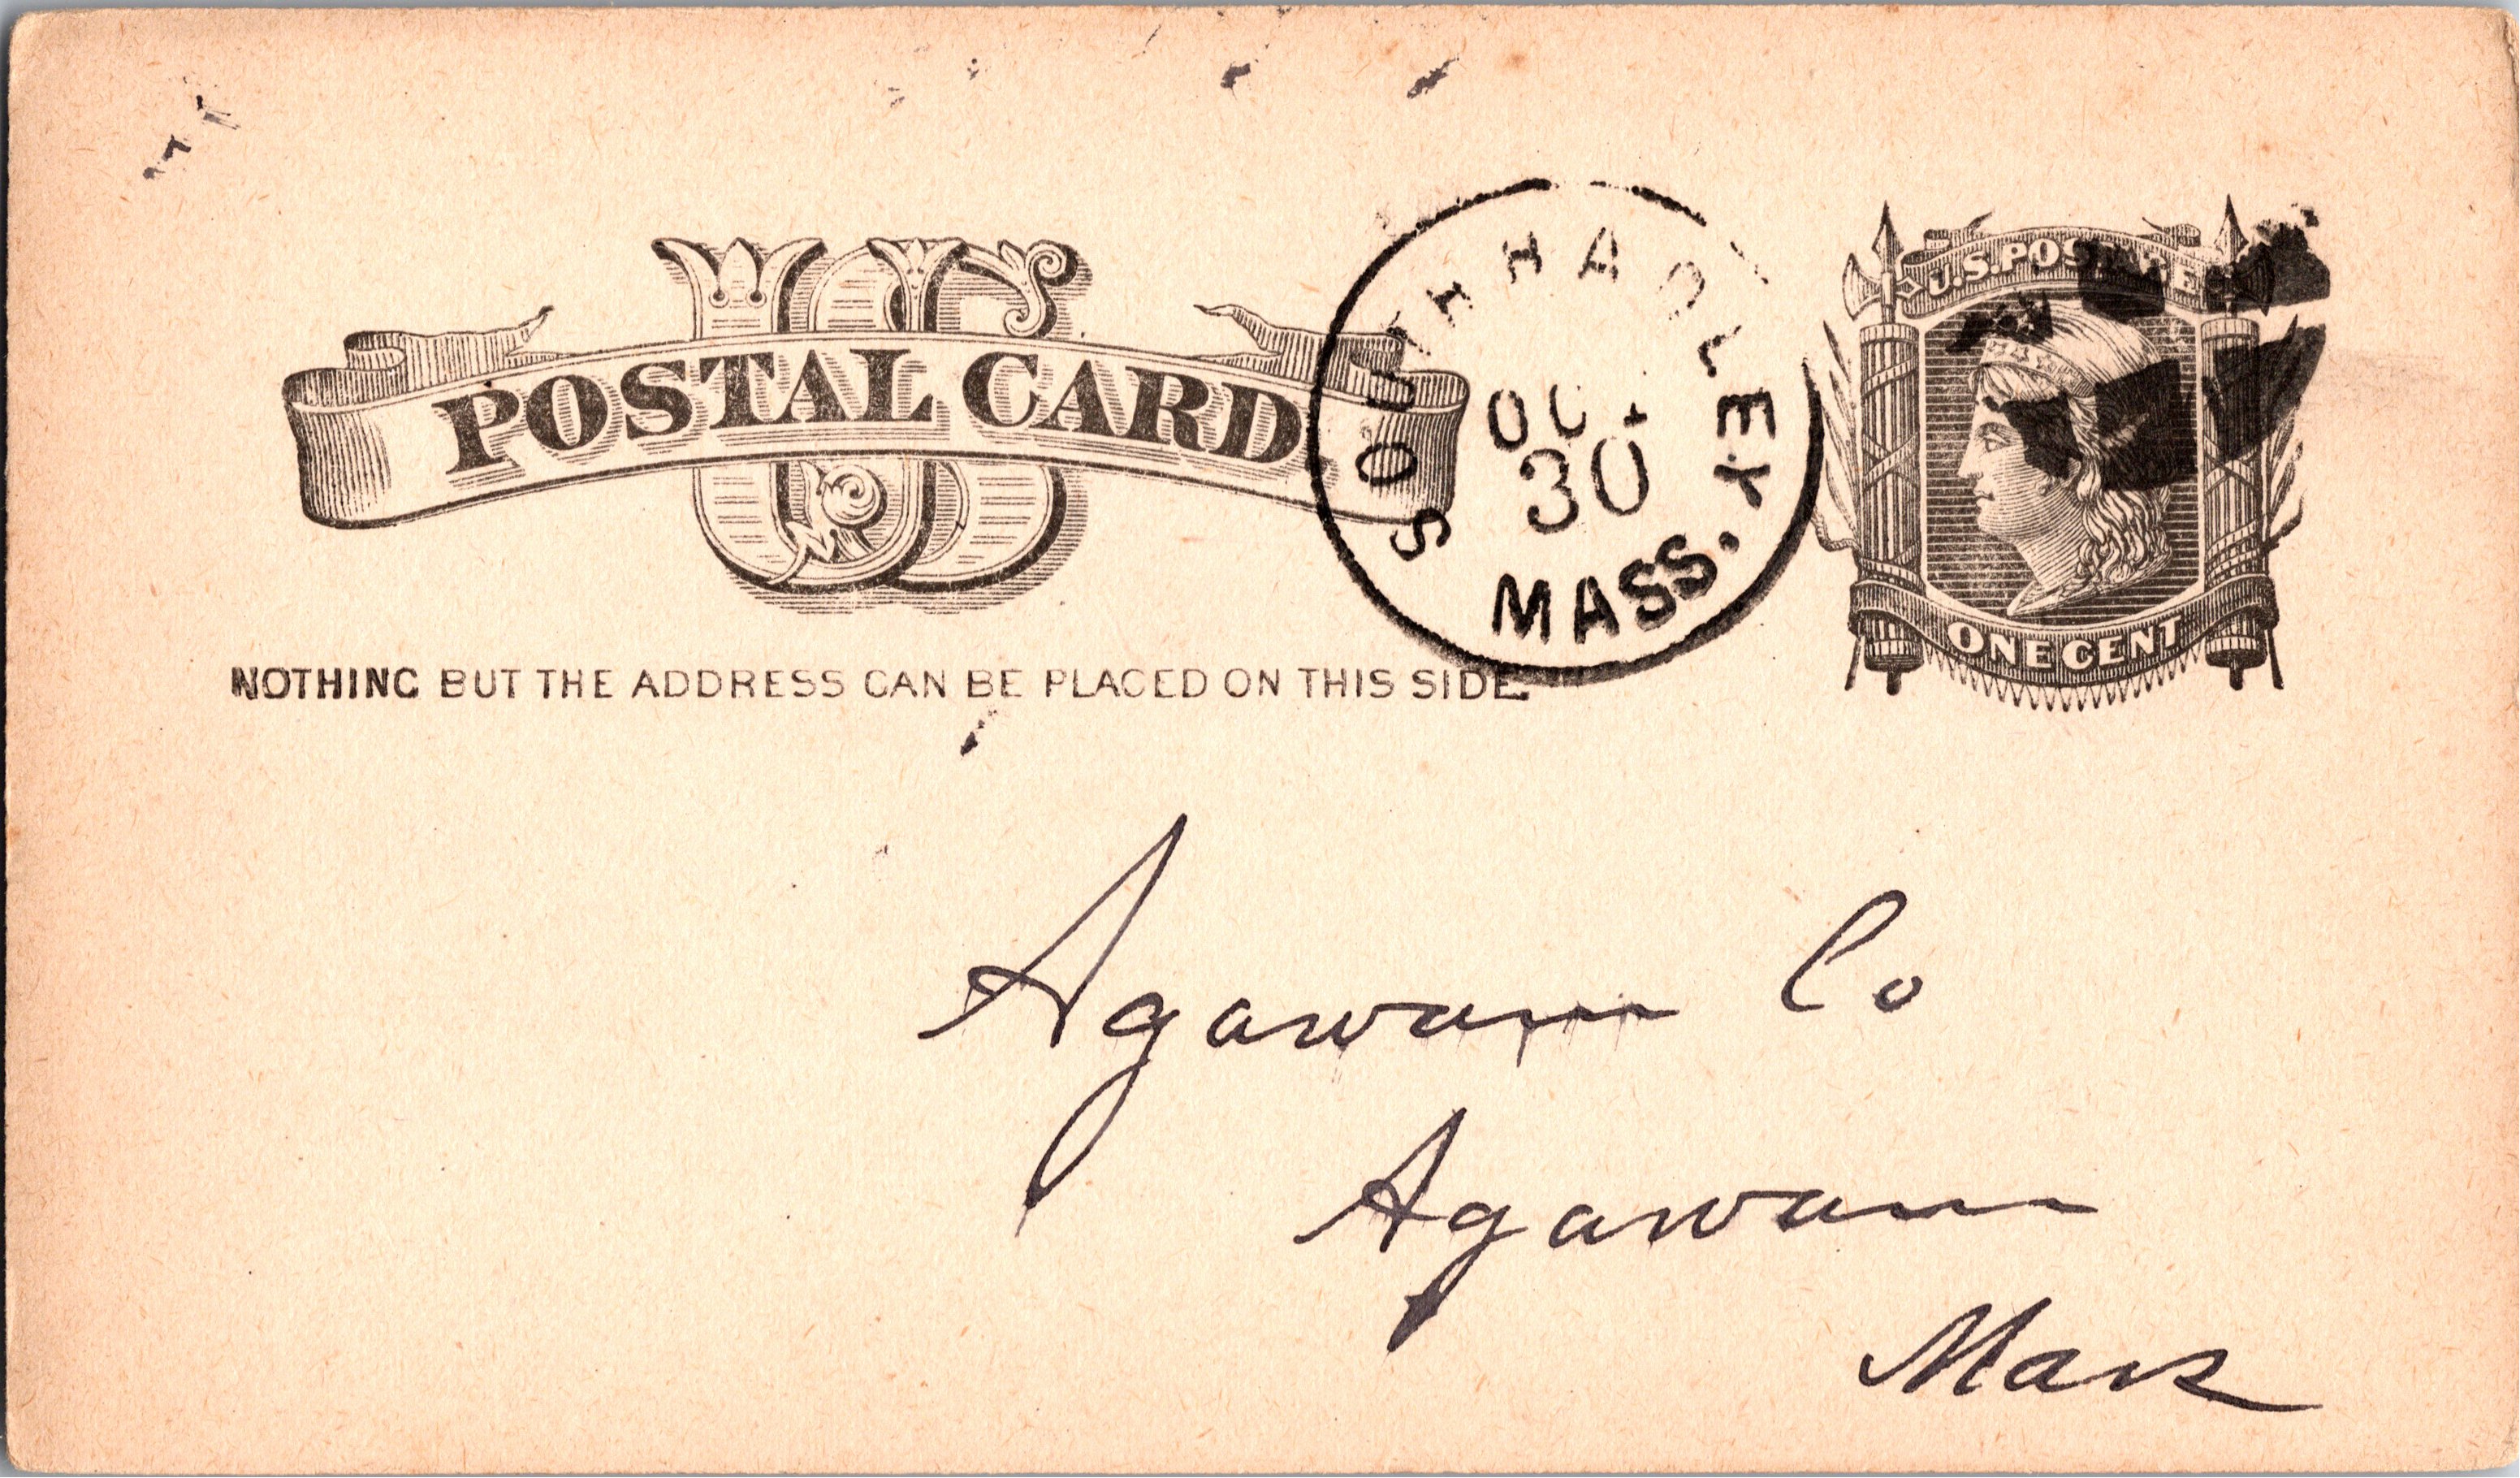 US
POSTAL CARD
SOUTH HADLEY
OCT
30
MASS.
U.S. POSTAGE
ONE CENT
NOTHING BUT THE ADDRESS CAN BE PLACED ON THIS SIDE.
Agawam Co
Agawam
Mass